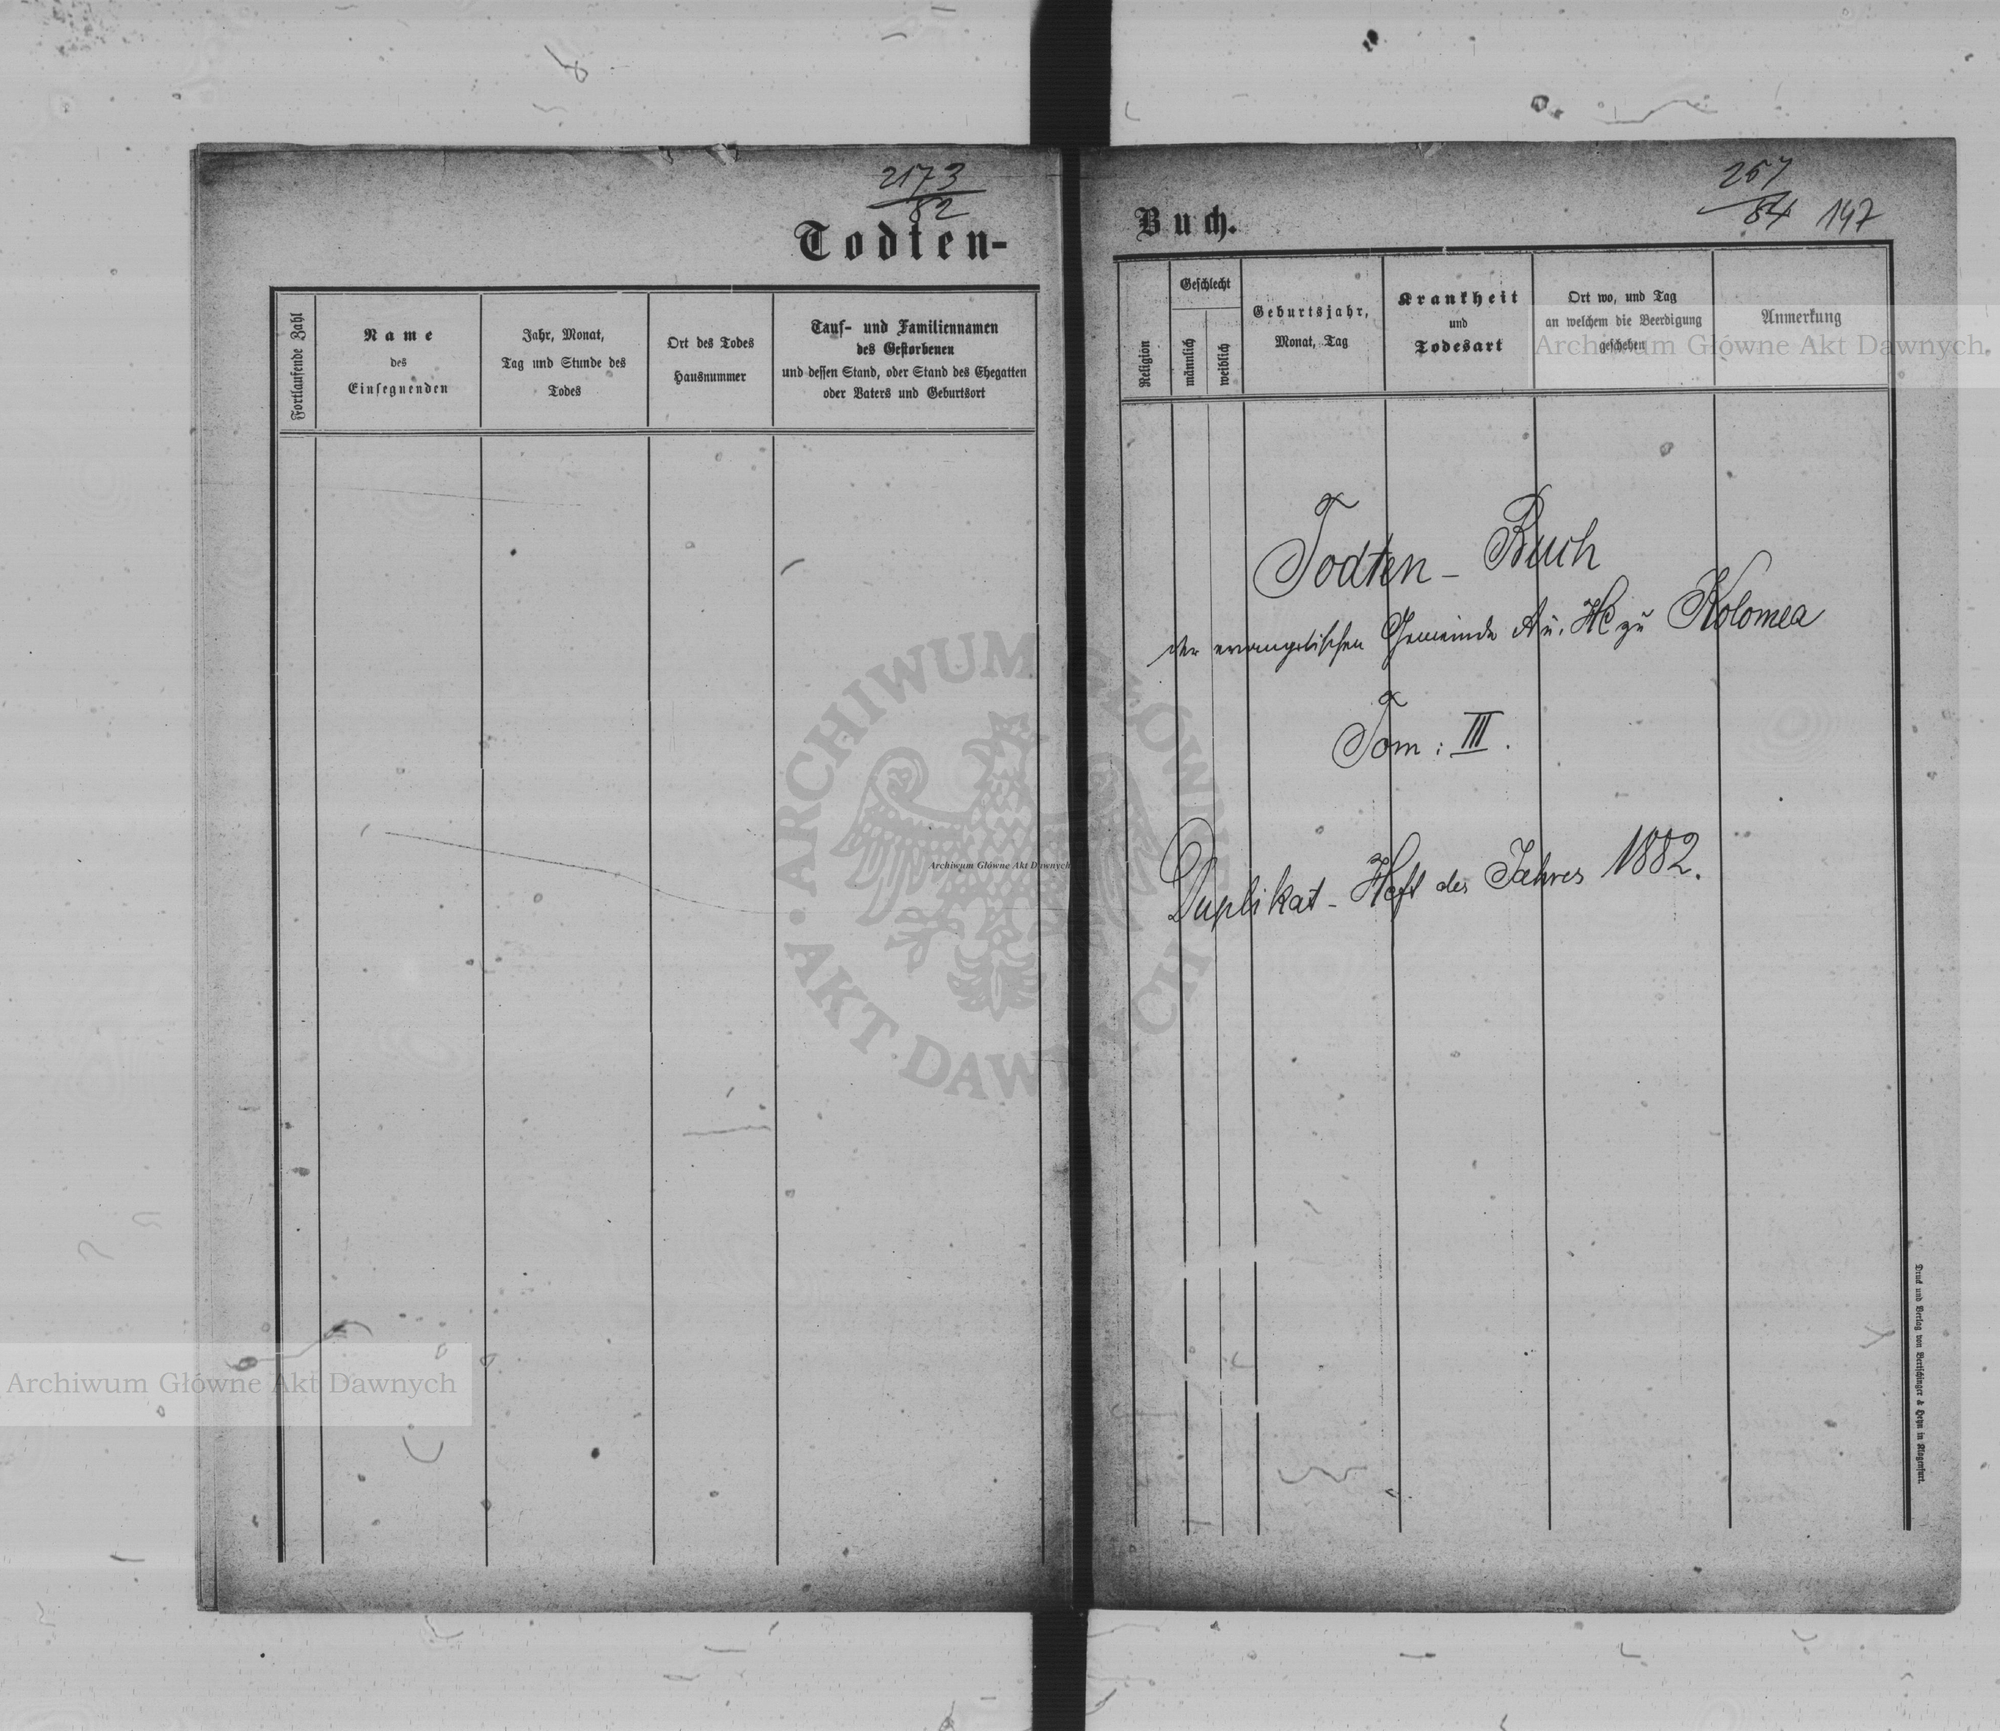 2173
82
Todten-
Fortlaufende Zahl
Name
des
Einsegnenden
Jahr, Monat,
Tag und Stunde des
Todes
Ort des Todes
Hausnummer
Tauf- und Familiennamen
des Gestorbenen
und dessen Stand, oder Stand des Ehegatten
oder Vaters und Geburtsort
257
84
147
Buch.
Religion
Geschlecht
männlich
weiblich
Geburtsjahr,
Monat, Tag
Krankheit
und
Todesart
Ort wo, und Tag
an welchem die Beerdigung
geschehen
Anmerkung
Todten - Buch
der evangelischen Gemeinde A u. HC zu Kolomea
Tom: III.
Duplikat - Heft des Jahres 1882.
Druck und Verlag von Bertschinger & Heyn in Klagenfurt.
ARCHIWUM GŁÓWNE AKT DAWNYCH
Archiwum Główne Akt Dawnych
Archiwum Główne Akt Dawnych
Archiwum Główne Akt Dawnych